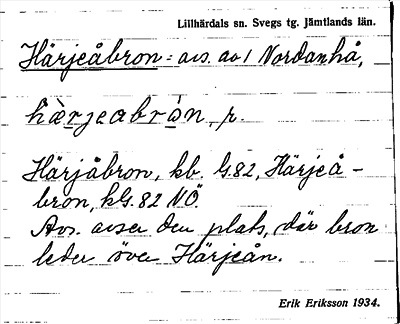 Lillhärdals sn. Svegs tg. Jämtlands län.
Härjeåbron = avs. av 1 Nordanhå,
hä̀rjeabrån, p.
Härjåbron, kb. G.82, Härjeå-
bron, kG. 82 NÖ.
Avs. avser den plats, där bron
leder över Härjeån.
Erik Eriksson 1934.